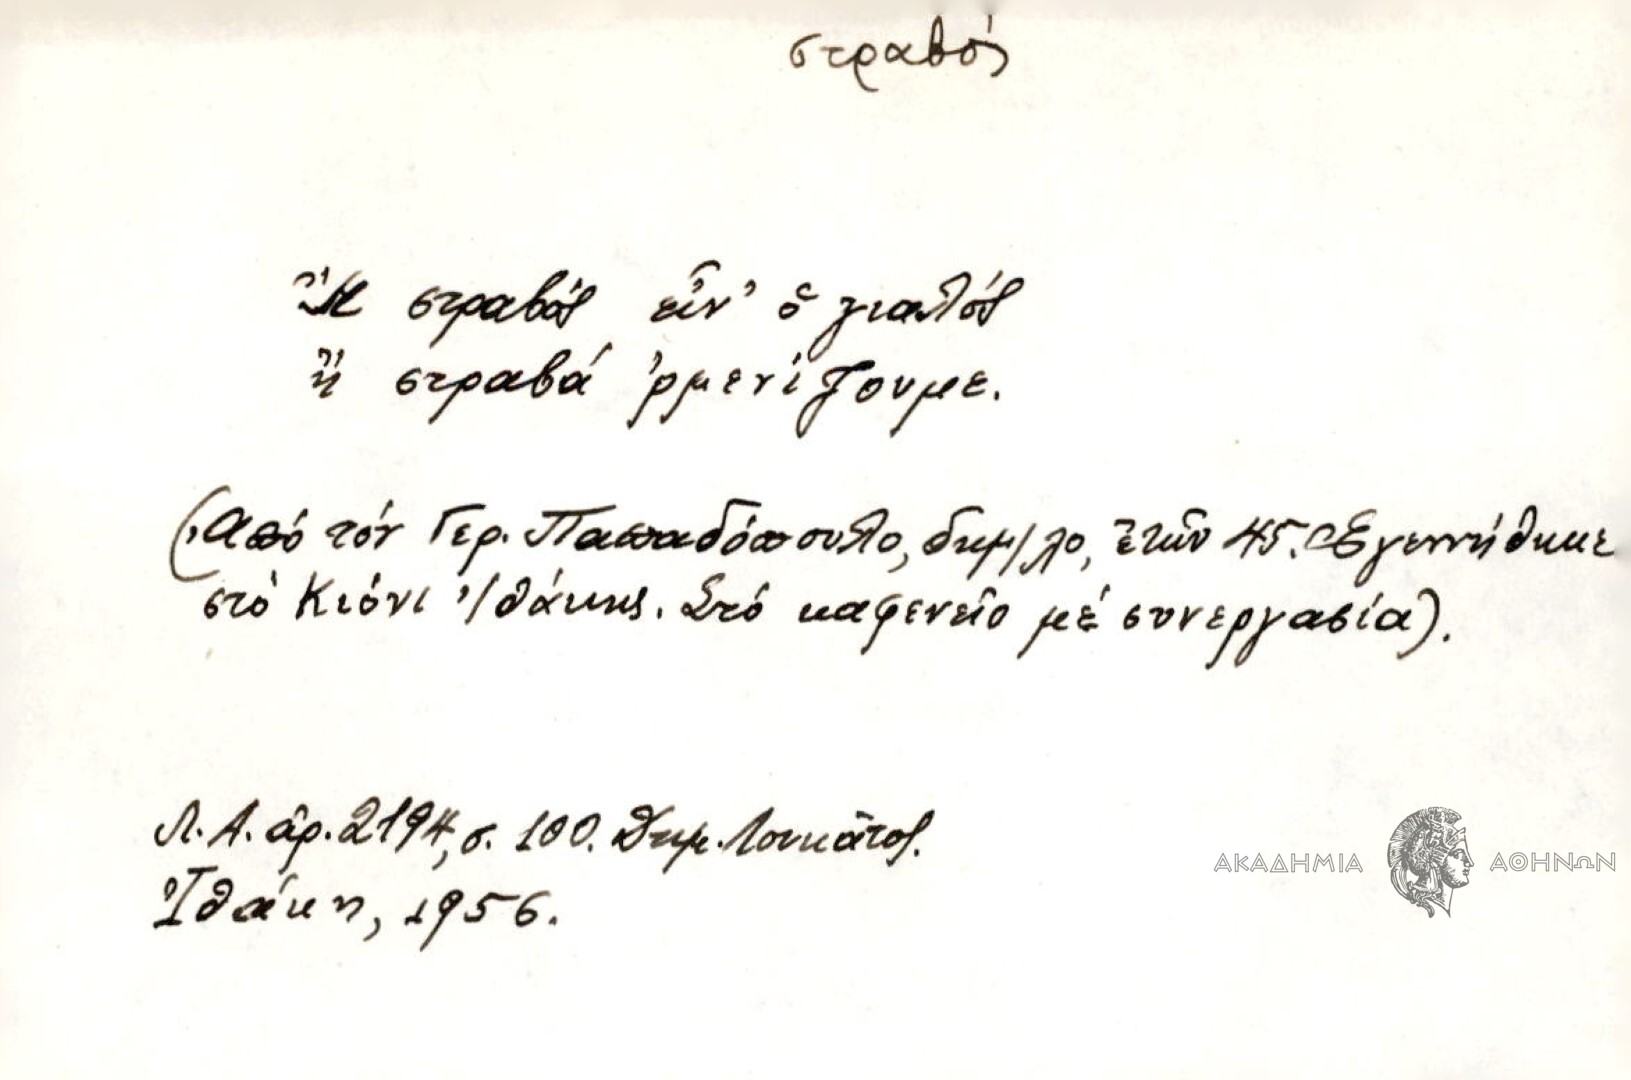 στραβός
Ἤ στραβός εἶν' ὁ γιαλός
ἤ στραβά 'ρμενίζουμε.
(Ἀπό τόν Γερ. Παπαδόπουλο, δημ/λο, ἐτῶν 45. Ἐγεννήθηκε
στό Κιόνι Ἰθάκης. Στό καφενεῖο μέ συνεργασία).
Λ. Α. ἀρ. 2194, σ. 100. Δημ. Λουκᾶτος.
Ἰθάκη, 1956.
ΑΚΑΔΗΜΙΑ ΑΘΗΝΩΝ